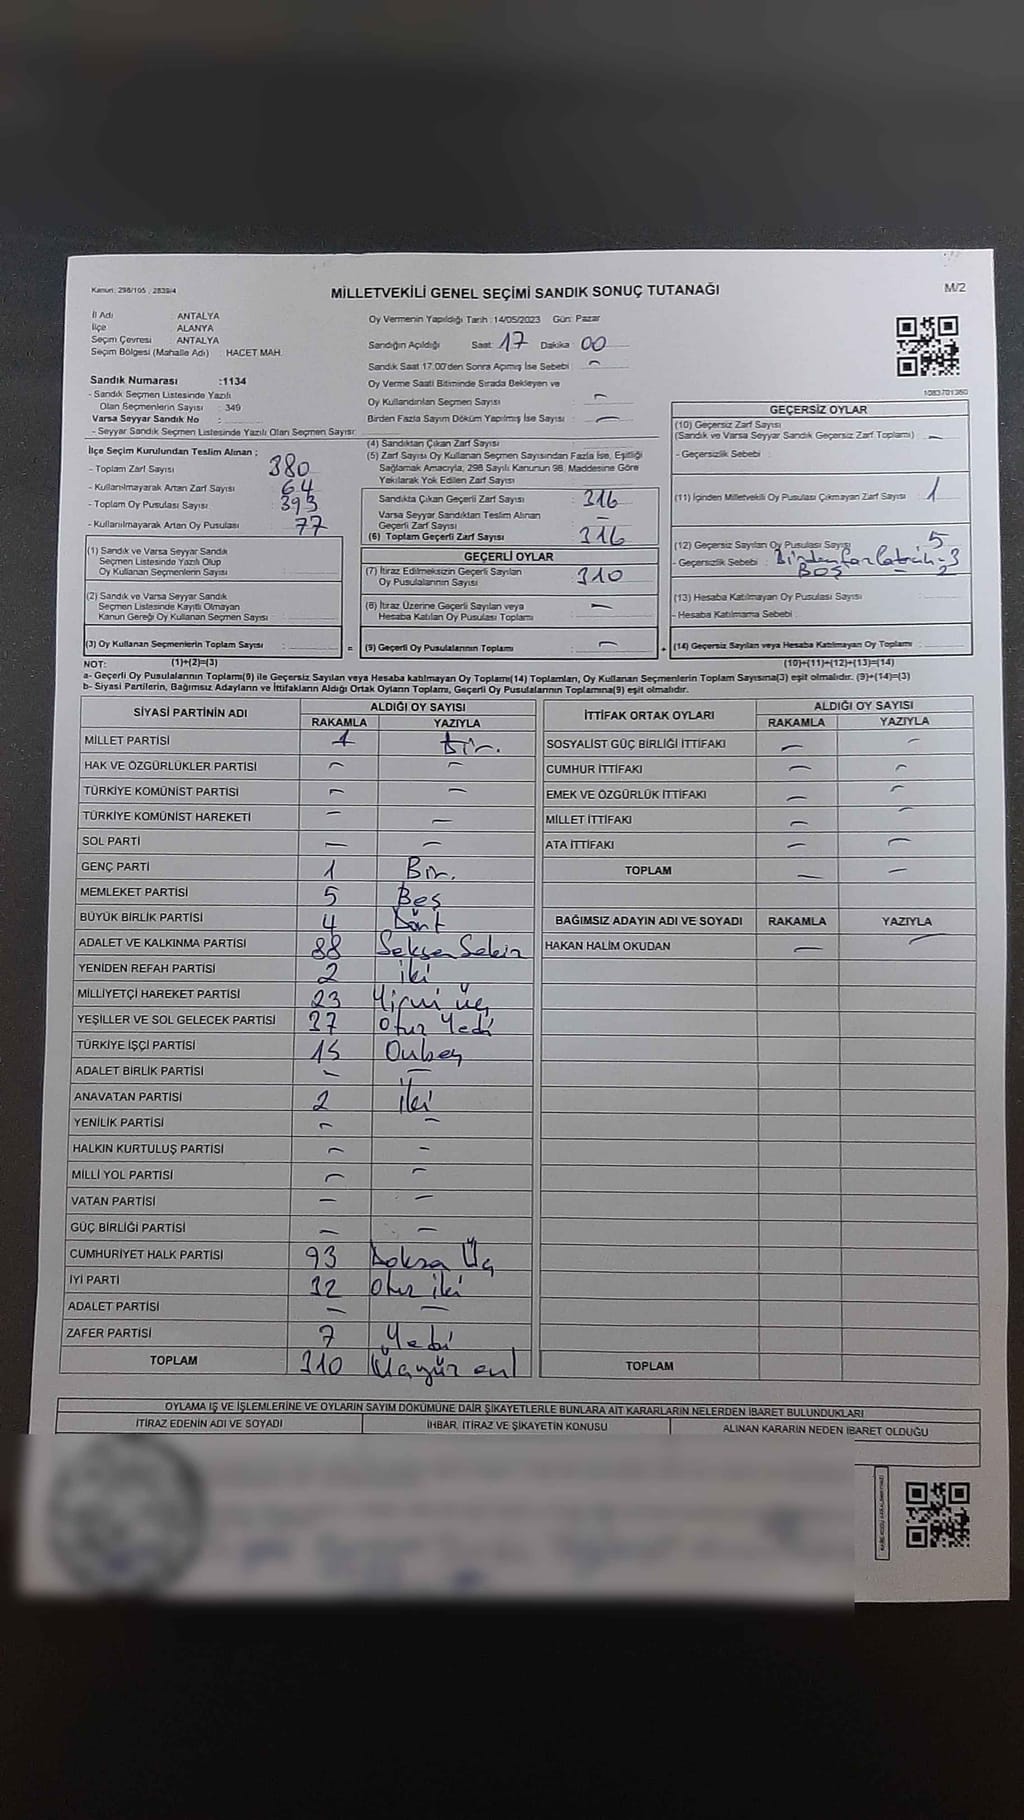 Kanun: 298/105 , 2839/4
MİLLETVEKİLİ GENEL SEÇİMİ SANDIK SONUÇ TUTANAĞI
M/2
İl Adı : ANTALYA
İlçe : ALANYA
Seçim Çevresi : ANTALYA
Seçim Bölgesi (Mahalle Adı) : HACET MAH.
Sandık Numarası :1134
- Sandık Seçmen Listesinde Yazılı
Olan Seçmenlerin Sayısı : 349
Varsa Seyyar Sandık No :
- Seyyar Sandık Seçmen Listesinde Yazılı Olan Seçmen Sayısı:
İlçe Seçim Kurulundan Teslim Alınan ;
- Toplam Zarf Sayısı : 380
- Kullanılmayarak Artan Zarf Sayısı : 64
- Toplam Oy Pusulası Sayısı : 393
- Kullanılmayarak Artan Oy Pusulası : 77
(1) Sandık ve Varsa Seyyar Sandık
Seçmen Listesinde Yazılı Olup
Oy Kullanan Seçmenlerin Sayısı :
(2) Sandık ve Varsa Seyyar Sandık
Seçmen Listesinde Kayıtlı Olmayan
Kanun Gereği Oy Kullanan Seçmen Sayısı :
(3) Oy Kullanan Seçmenlerin Toplam Sayısı :
Oy Vermenin Yapıldığı Tarih :14/05/2023 Gün: Pazar
Sandığın Açıldığı Saat: 17 Dakika: 00
Sandık Saat 17.00'den Sonra Açılmış İse Sebebi : –
Oy Verme Saati Bitiminde Sırada Bekleyen ve
Oy Kullandırılan Seçmen Sayısı : –
Birden Fazla Sayım Döküm Yapılmış İse Sayısı : –
(4) Sandıktan Çıkan Zarf Sayısı :
(5) Zarf Sayısı Oy Kullanan Seçmen Sayısından Fazla İse, Eşitliği
Sağlamak Amacıyla, 298 Sayılı Kanunun 98. Maddesine Göre
Yakılarak Yok Edilen Zarf Sayısı :
Sandıkta Çıkan Geçerli Zarf Sayısı : 316
Varsa Seyyar Sandıktan Teslim Alınan
Geçerli Zarf Sayısı : –
(6) Toplam Geçerli Zarf Sayısı : 316
GEÇERLİ OYLAR
(7) İtiraz Edilmeksizin Geçerli Sayılan
Oy Pusulalarının Sayısı : 310
(8) İtiraz Üzerine Geçerli Sayılan veya
Hesaba Katılan Oy Pusulası Toplamı : –
= (9) Geçerli Oy Pusulalarının Toplamı : –
1083701360
GEÇERSİZ OYLAR
(10) Geçersiz Zarf Sayısı
(Sandık ve Varsa Seyyar Sandık Geçersiz Zarf Toplamı) : –
- Geçersizlik Sebebi :
(11) İçinden Milletvekili Oy Pusulası Çıkmayan Zarf Sayısı : 1
(12) Geçersiz Sayılan Oy Pusulası Sayısı : 5
- Geçersizlik Sebebi : Birden Fazla - 3
BOŞ – 2
(13) Hesaba Katılmayan Oy Pusulası Sayısı :
- Hesaba Katılmama Sebebi :
+ (14) Geçersiz Sayılan veya Hesaba Katılmayan Oy Toplamı :
NOT: (1)+(2)=(3) (10)+(11)+(12)+(13)=(14)
a- Geçerli Oy Pusulalarının Toplamı(9) ile Geçersiz Sayılan veya Hesaba katılmayan Oy Toplamı(14) Toplamları, Oy Kullanan Seçmenlerin Toplam Sayısına(3) eşit olmalıdır. (9)+(14)=(3)
b- Siyasi Partilerin, Bağımsız Adayların ve İttifakların Aldığı Ortak Oyların Toplamı, Geçerli Oy Pusulalarının Toplamına(9) eşit olmalıdır.
SİYASİ PARTİNİN ADI ALDIĞI OY SAYISI
RAKAMLA YAZIYLA
MİLLET PARTİSİ 1 Bir.
HAK VE ÖZGÜRLÜKLER PARTİSİ – –
TÜRKİYE KOMÜNİST PARTİSİ – –
TÜRKİYE KOMÜNİST HAREKETİ – –
SOL PARTİ – –
GENÇ PARTİ 1 Bir.
MEMLEKET PARTİSİ 5 Beş
BÜYÜK BİRLİK PARTİSİ 4 Dört
ADALET VE KALKINMA PARTİSİ 88 Seksen Sekiz
YENİDEN REFAH PARTİSİ 2 İki
MİLLİYETÇİ HAREKET PARTİSİ 23 Yirmi üç
YEŞİLLER VE SOL GELECEK PARTİSİ 37 Otuz Yedi
TÜRKİYE İŞÇİ PARTİSİ 15 Onbeş
ADALET BİRLİK PARTİSİ – –
ANAVATAN PARTİSİ 2 İki
YENİLİK PARTİSİ – –
HALKIN KURTULUŞ PARTİSİ – –
MİLLİ YOL PARTİSİ – –
VATAN PARTİSİ – –
GÜÇ BİRLİĞİ PARTİSİ – –
CUMHURİYET HALK PARTİSİ 93 Doksan Üç
İYİ PARTİ 32 Otuz iki
ADALET PARTİSİ – –
ZAFER PARTİSİ 7 Yedi
TOPLAM 310 Üçyüz on
İTTİFAK ORTAK OYLARI ALDIĞI OY SAYISI
RAKAMLA YAZIYLA
SOSYALİST GÜÇ BİRLİĞİ İTTİFAKI – –
CUMHUR İTTİFAKI – –
EMEK VE ÖZGÜRLÜK İTTİFAKI – –
MİLLET İTTİFAKI – –
ATA İTTİFAKI – –
TOPLAM – –
BAĞIMSIZ ADAYIN ADI VE SOYADI RAKAMLA YAZIYLA
HAKAN HALİM OKUDAN – –
TOPLAM
OYLAMA İŞ VE İŞLEMLERİNE VE OYLARIN SAYIM DÖKÜMÜNE DAİR ŞİKAYETLERLE BUNLARA AİT KARARLARIN NELERDEN İBARET BULUNDUKLARI
İTİRAZ EDENİN ADI VE SOYADI İHBAR, İTİRAZ VE ŞİKAYETİN KONUSU ALINAN KARARIN NEDEN İBARET OLDUĞU